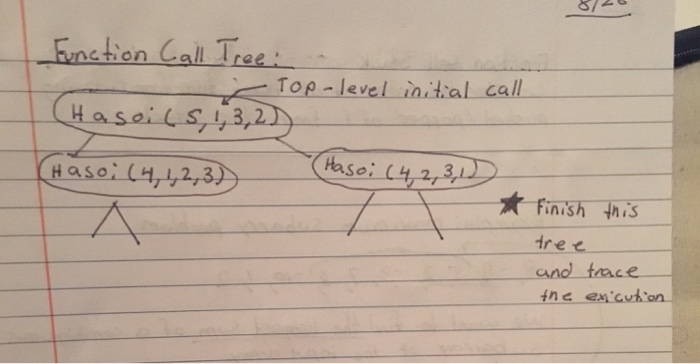 8/26
Function Call Tree:
Top-level initial call
Hasoi(5,1,3,2)
Hasoi(4,1,2,3)
Hasoi(4,2,3,1)
★ Finish this
tree
and trace
the exicution